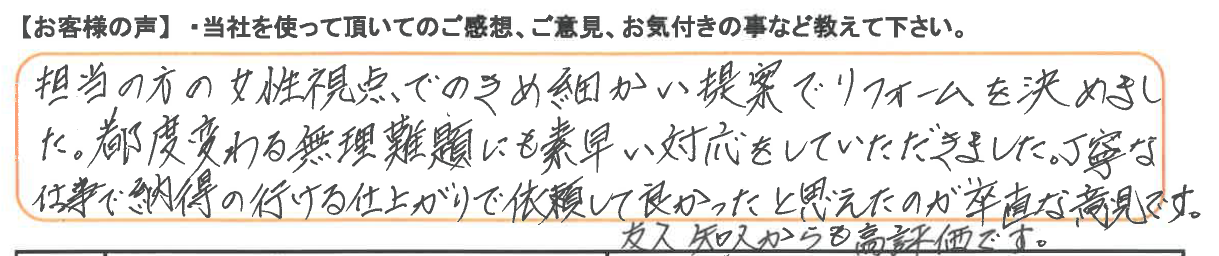 【お客様の声】・当社を使って頂いてのご感想、ご意見、お気付きの事など教えて下さい。
担当の方の女性視点でのきめ細かい提案でリフォームを決めまし
た。都度変わる無理難題にも素早い対応をしていただきました。丁寧な
仕事で納得の行ける仕上がりで依頼して良かったと思えたのが率直な意見です。
友人知人からも高評価です。